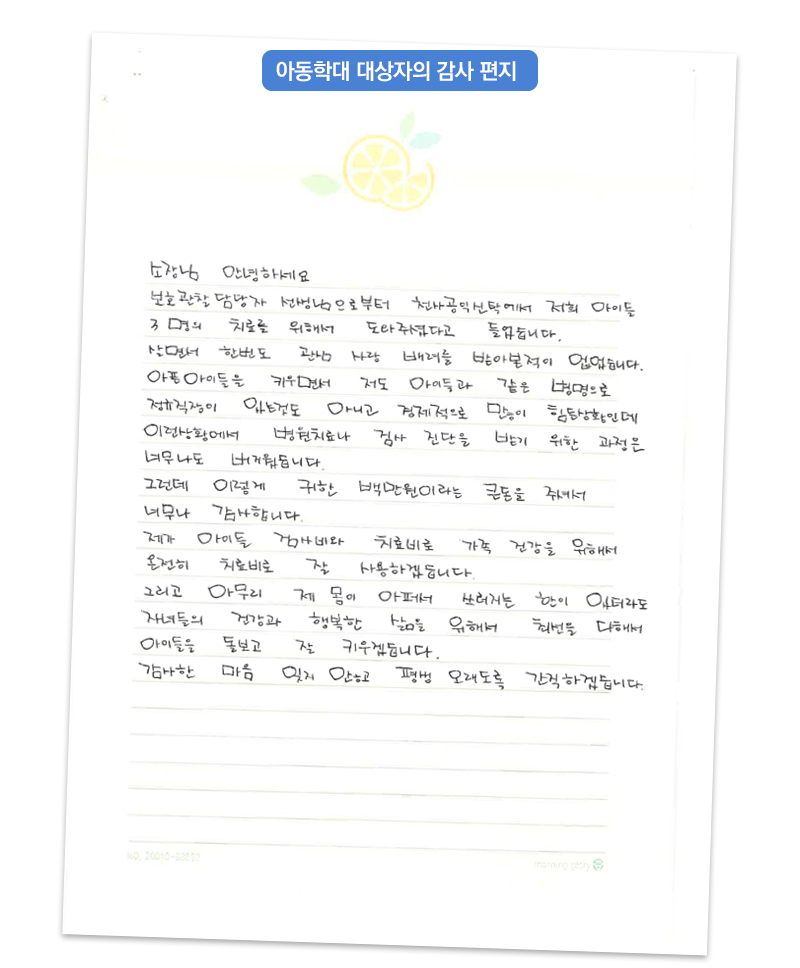 아동학대 대상자의 감사 편지
소장님 안녕하세요
보호관찰 담당자 선생님으로부터 천사공익신탁에서 저희 아이들
3명의 치료를 위해서 도와주셨다고 들었습니다.
살면서 한번도 관심 사랑 배려를 받아본적이 없었습니다.
아픈아이들을 키우면서 저도 아이들과 같은 병명으로
정규직장이 있는것도 아니고 경제적으로 많이 힘든상황인데
이런상황에서 병원치료나 검사 진단을 받기 위한 과정은
너무나도 버거웠습니다.
그런데 이렇게 귀한 백만원이라는 큰돈을 주셔서
너무나 감사합니다.
제가 아이들 검사비와 치료비로 가족 건강을 위해서
온전히 치료비로 잘 사용하겠습니다.
그리고 아무리 제 몸이 아퍼서 쓰러지는 한이 있더라도
자녀들의 건강과 행복한 삶을 위해서 최선을 다해서
아이들을 돌보고 잘 키우겠습니다.
감사한 마음 잊지 않고 평생 오래도록 간직하겠습니다.
morning glory